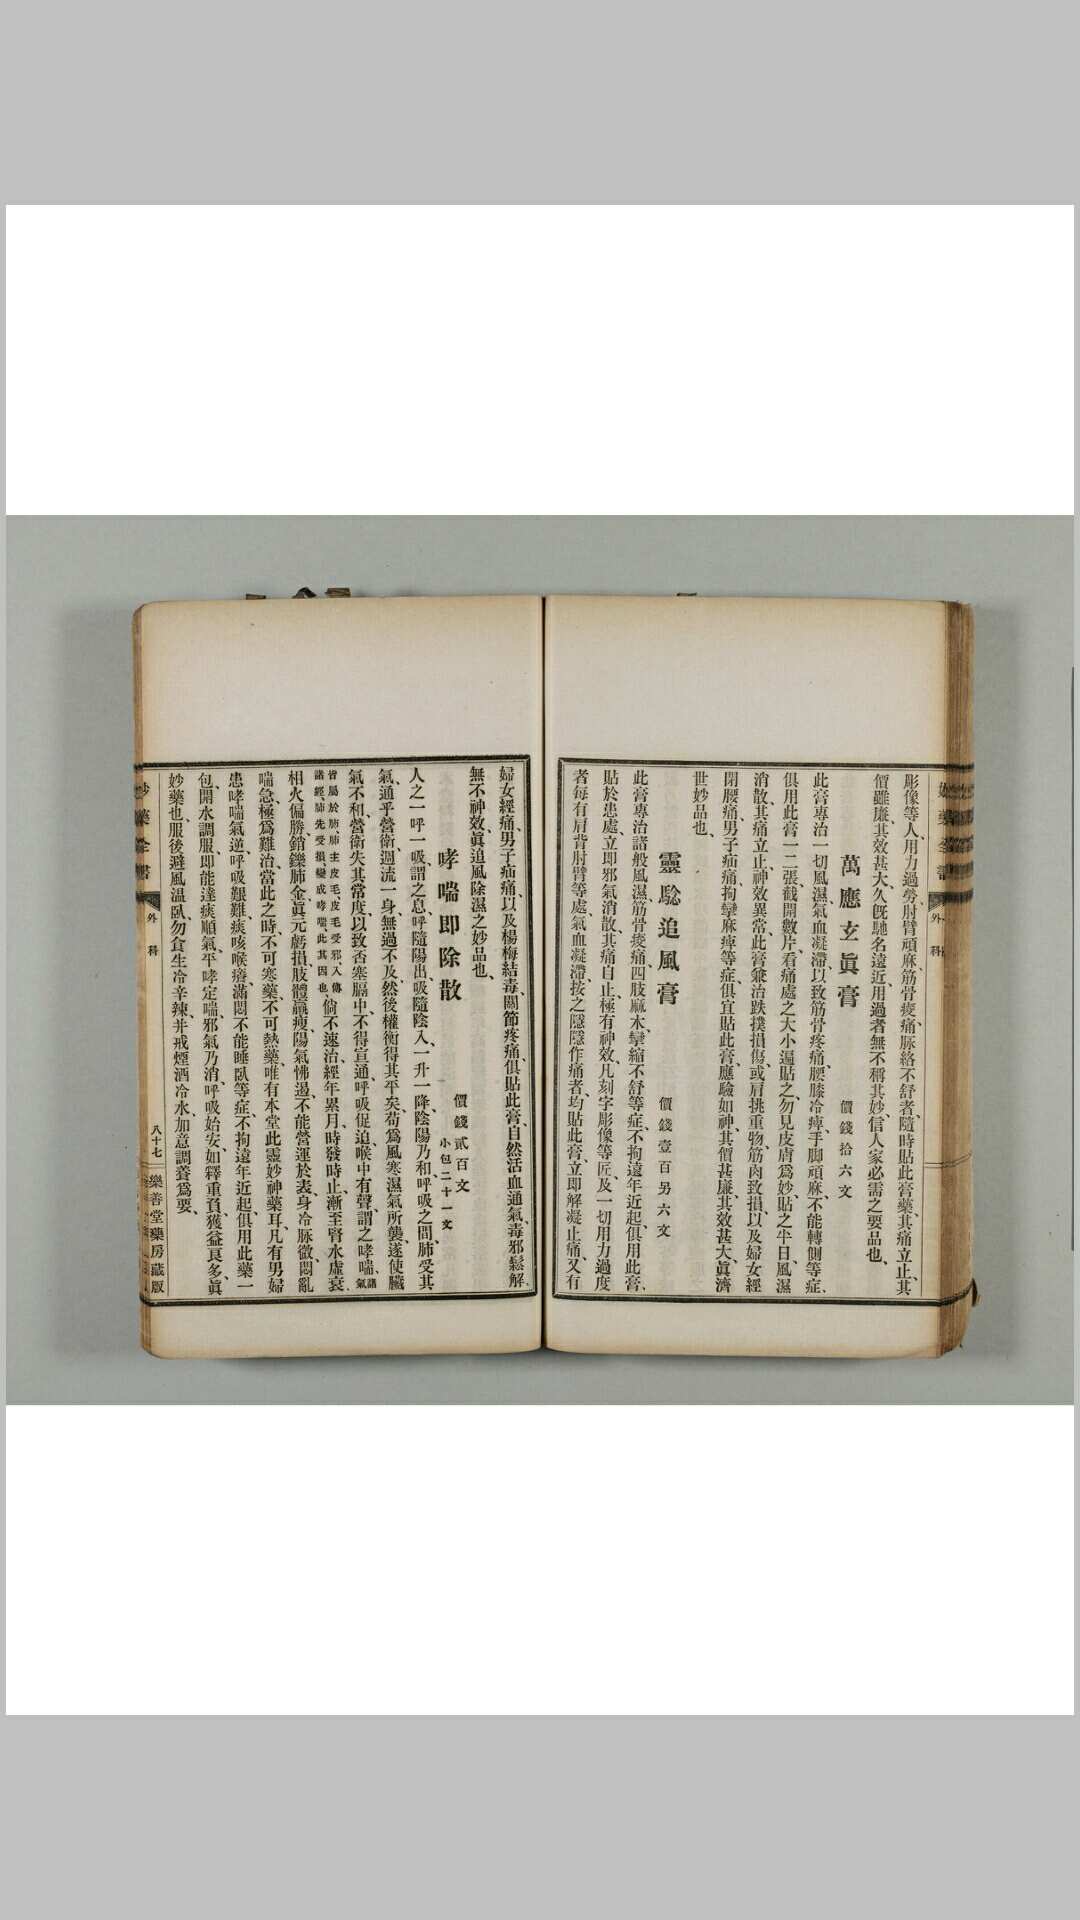 妙藥全書
外科
彫像等人、用力過勞、肘臂頑麻、筋骨痠痛、脈絡不舒者、隨時貼此膏藥、其痛立止、其
價雖廉、其效甚大、久既馳名遠近、用過者無不稱其妙、信人家必需之要品也、
萬應玄眞膏
價錢拾六文
此膏專治一切風濕、氣血凝滯、以致筋骨疼痛、腰膝冷痺、手脚頑麻、不能轉側等症、
俱用此膏一二張、截開數片、看痛處之大小遍貼之、勿見皮膚爲妙、貼之半日、風濕
消散、其痛立止、神效異常、此膏兼治跌撲損傷、或肩挑重物、筋肉致損、以及婦女經
閉腰痛、男子疝痛、拘攣麻痺等症、俱宜貼此膏、應驗如神、其價甚廉、其效甚大、眞濟
世妙品也、
靈騐追風膏
價錢壹百另六文
此膏專治諸般風濕、筋骨痠痛、四肢麻木、攣縮不舒等症、不拘遠年近起、俱用此膏、
貼於患處、立卽邪氣消散、其痛自止、極有神效、凡刻字彫像等匠、及一切用力過度
者、每有肩背肘臂等處、氣血凝滯、按之隱隱作痛者、均貼此膏、立卽解凝止痛、又有
婦女經痛、男子疝痛、以及楊梅結毒、關節疼痛、俱貼此膏、自然活血通氣、毒邪鬆解、
無不神效、眞追風除濕之妙品也、
哮喘即除散
價錢貳百文
小包二十一文
人之一呼一吸、謂之息、呼隨陽出、吸隨陰入、一升一降、陰陽乃和、呼吸之間、肺受其
氣、通乎營衛、週流一身、無過不及、然後權衡得其平矣、苟爲風寒濕氣所襲、遂使臟
氣不和、營衛失其常度、以致否塞膈中、不得宣通、呼吸促迫、喉中有聲、謂之哮喘、諸氣
皆屬於肺、肺主皮毛、皮毛受邪、入傳諸經、肺先受損、變成哮喘、此其因也、倘不速治、經年累月、時發時止、漸至腎水虛衰、
相火偏勝、銷鑠肺金、眞元虧損、肢體羸瘦、陽氣怫遏、不能營運於表、身冷脈微、悶亂
喘急、極爲難治、當此之時、不可寒藥、不可熱藥、唯有本堂此靈妙神藥耳、凡有男婦
患哮喘氣逆、呼吸艱難、痰咳喉癢、滿悶不能睡臥等症、不拘遠年近起、俱用此藥一
包、開水調服、卽能達痰順氣、平哮定喘、邪氣乃消、呼吸始安、如釋重負、獲益良多、眞
妙藥也、服後避風溫臥、勿食生冷辛辣、并戒煙酒冷水、加意調養爲要、
妙藥全書
外科
八十七
樂善堂藥房藏版